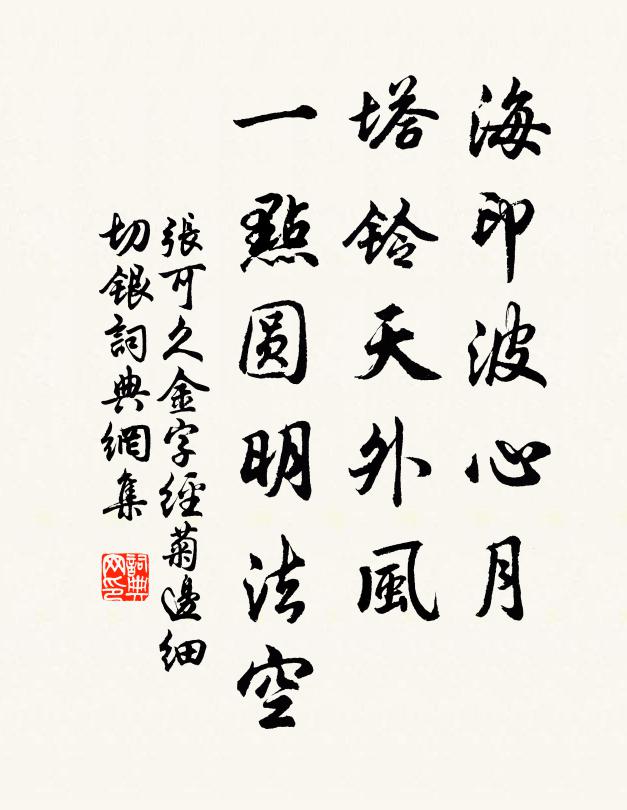 海印波心月
塔鈴天外風
一點圓明法空
張可久金字經菊邊細
切銀詞典網集
詞典
网印